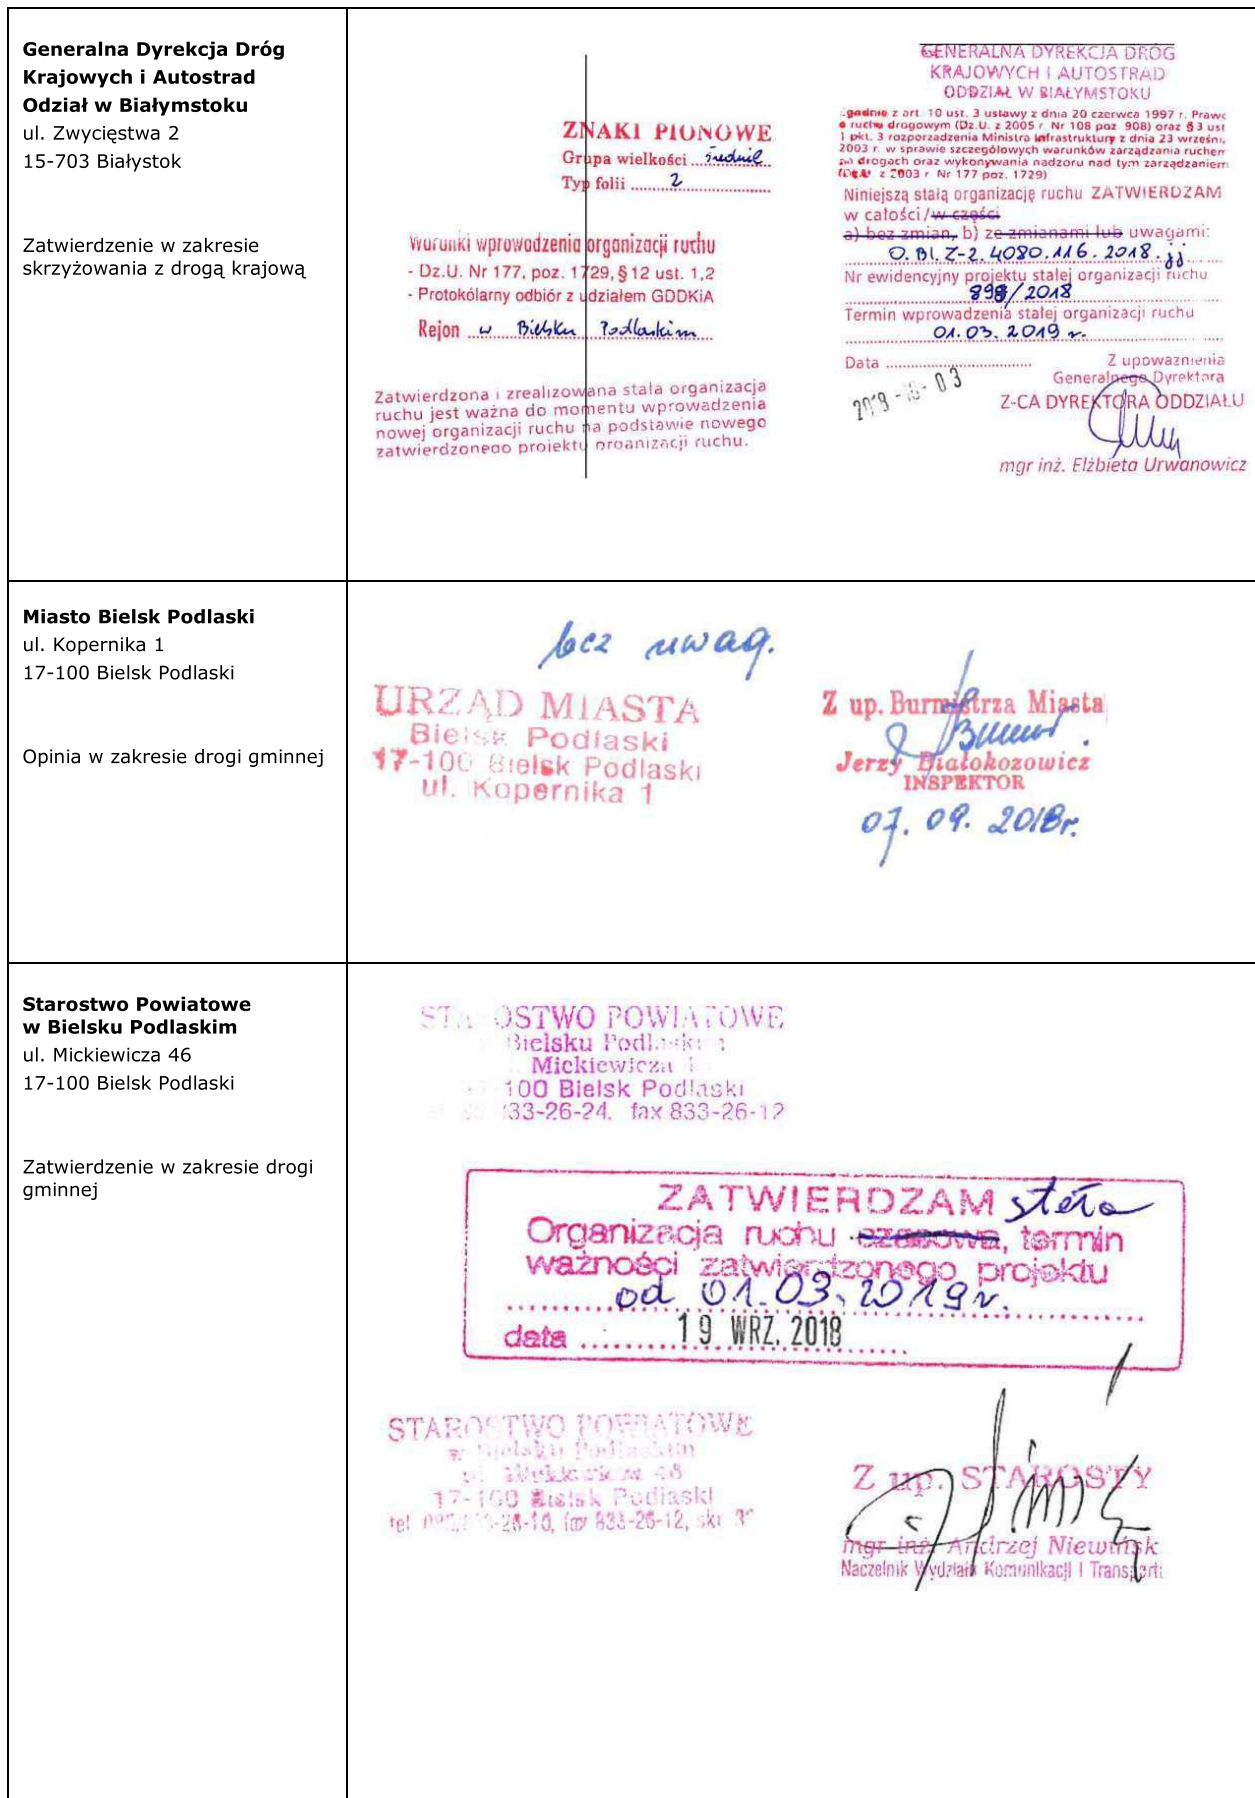 Generalna Dyrekcja Dróg
Krajowych i Autostrad
Odział w Białymstoku
ul. Zwycięstwa 2
15-703 Białystok
Zatwierdzenie w zakresie
skrzyżowania z drogą krajową
ZNAKI PIONOWE
Grupa wielkości średnie
Typ folii 2
Warunki wprowadzenia organizacji ruchu
- Dz.U. Nr 177, poz. 1729, § 12 ust. 1,2
- Protokólarny odbiór z udziałem GDDKiA
Rejon w Bielsku Podlaskim
Zatwierdzona i zrealizowana stała organizacja
ruchu jest ważna do momentu wprowadzenia
nowej organizacji ruchu na podstawie nowego
zatwierdzonego projektu organizacji ruchu.
GENERALNA DYREKCJA DRÓG
KRAJOWYCH I AUTOSTRAD
ODDZIAŁ W BIAŁYMSTOKU
Zgodnie z art. 10 ust. 3 ustawy z dnia 20 czerwca 1997 r. Prawo
o ruchu drogowym (Dz.U. z 2005 r. Nr 108 poz. 908) oraz § 3 ust
1 pkt. 3 rozporządzenia Ministra Infrastruktury z dnia 23 wrześni
2003 r. w sprawie szczegółowych warunków zarządzania ruchem
na drogach oraz wykonywania nadzoru nad tym zarządzaniem
(Dz.U. z 2003 r. Nr 177 poz. 1729)
Niniejszą stałą organizację ruchu ZATWIERDZAM
w całości/w części
a) bez zmian, b) ze zmianami lub uwagami:
O.BI.Z-2.4080.116.2018.jj
Nr ewidencyjny projektu stałej organizacji ruchu
898/2018
Termin wprowadzenia stałej organizacji ruchu
01.03.2019 r.
Data
Z upoważnienia
Generalnego Dyrektora
Z-CA DYREKTORA ODDZIAŁU
mgr inż. Elżbieta Urwanowicz
Miasto Bielsk Podlaski
ul. Kopernika 1
17-100 Bielsk Podlaski
Opinia w zakresie drogi gminnej
bez uwag.
URZĄD MIASTA
Bielsk Podlaski
17-100 Bielsk Podlaski
ul. Kopernika 1
Z up. Burmistrza Miasta
Jerzy Białokozowicz
INSPEKTOR
07. 09. 2018r.
Starostwo Powiatowe
w Bielsku Podlaskim
ul. Mickiewicza 46
17-100 Bielsk Podlaski
Zatwierdzenie w zakresie drogi
gminnej
STAROSTWO POWIATOWE
Bielsku Podlaskim
Mickiewicza
100 Bielsk Podlaski
833-26-24, fax 833-26-12
ZATWIERDZAM stała
Organizacja ruchu czasowa, termin
ważności zatwierdzonego projektu
od 01.03.2019 r.
data 19 WRZ. 2018
STAROSTWO POWIATOWE
w Bielsku Podlaskim
17-100 Bielsk Podlaski
Z up. STAROSTY
mgr inż. Andrzej Niewińsk
Naczelnik Wydziału Komunikacji i Transportu